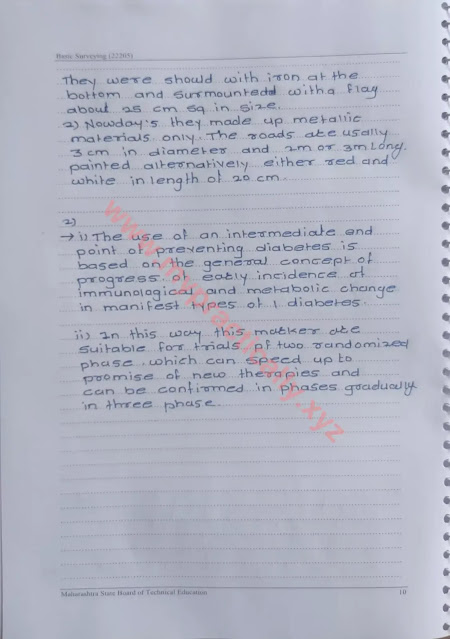 Basic Surveying (22205)
They were should with iron at the
bottom and surmounted with a flag
about 25 cm sq in size.
2) Nowday's they made up metallic
materials only. The roads are usally
3 cm in diameter and 2m or 3m long.
painted alternatively either red and
white in length of 20 cm.
2)
→ i) The use of an intermediate end
point of preventing diabetes is
based on the general concept of
progress of eatly incidence of
immunological and metabolic change
in manifest types of 1 diabetes.
ii) In this way this marker are
suitable for trials of two randomized
phase which can speed up to
promise of new therapies and
can be confirmed in phases gradually
in three phase.
www.mypractically.xyz
Maharashtra State Board of Technical Education 10